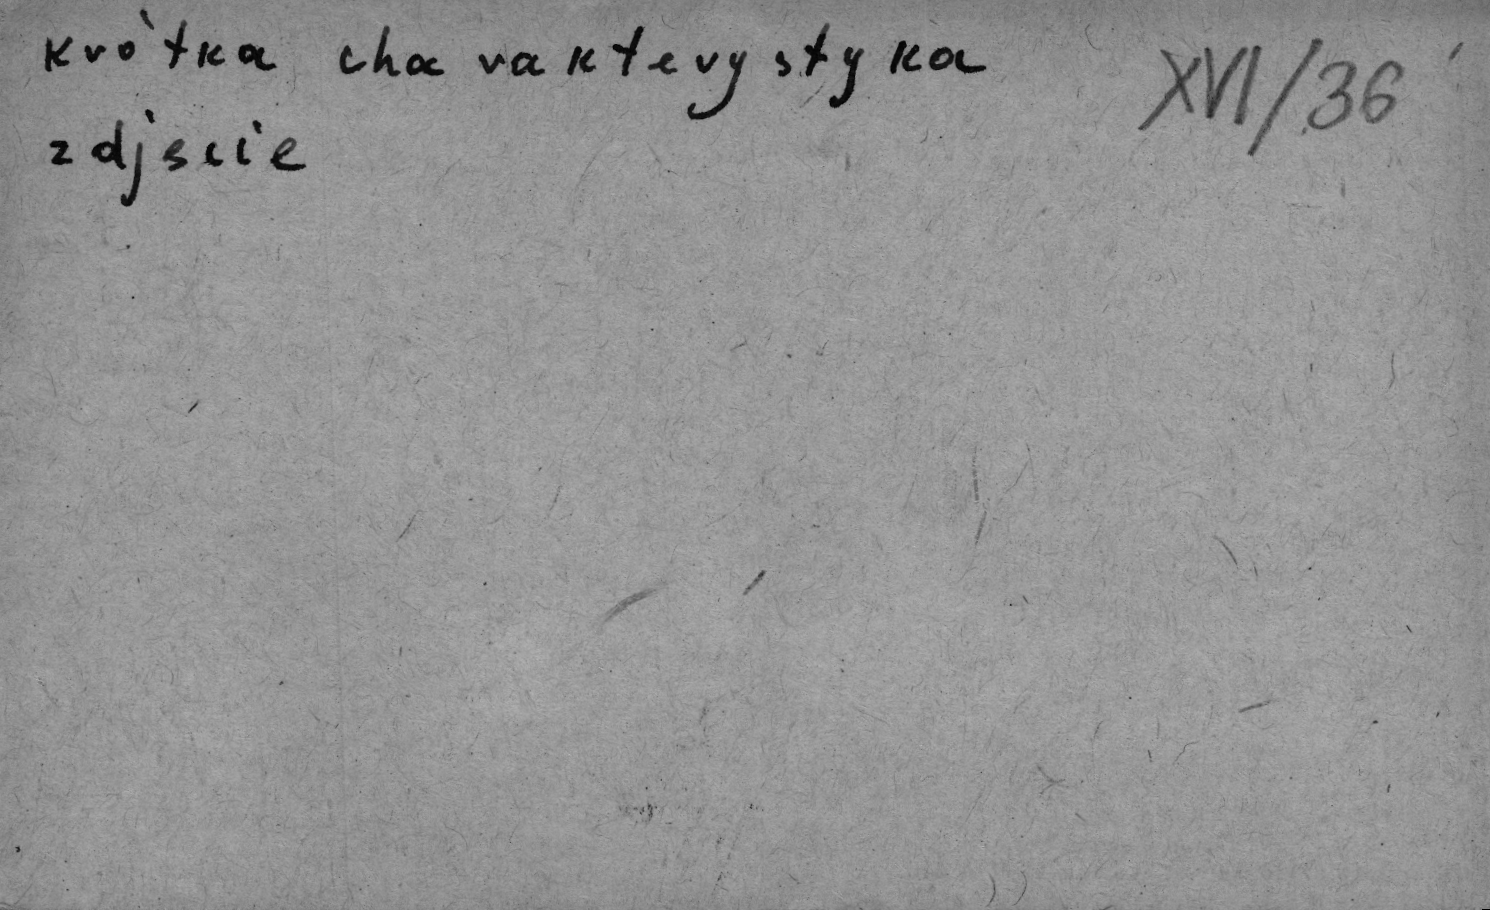 krótka charakterystyka
zdjscie
XVI/36